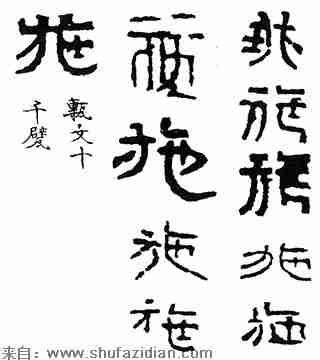 施施施施施
施施施施
施
甎文十
千甓
来自：www.shufazidian.com